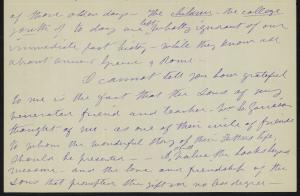 of those olden days - The children - the college
youth of to day are totally ignorant of our
immediate past history - while they know all
about ancient Greece & Rome.
I cannot tell you how grateful
to me is the fact that the Sons of my
venerated friend and teacher - Wm L. Garrison
thought of me - as one of their circle of friends
to whom the wonderful story of their Father's life,
should be presented - I value the books beyond
measure - and the love and friendship of the
Sons that prompted the gift in no less degree -